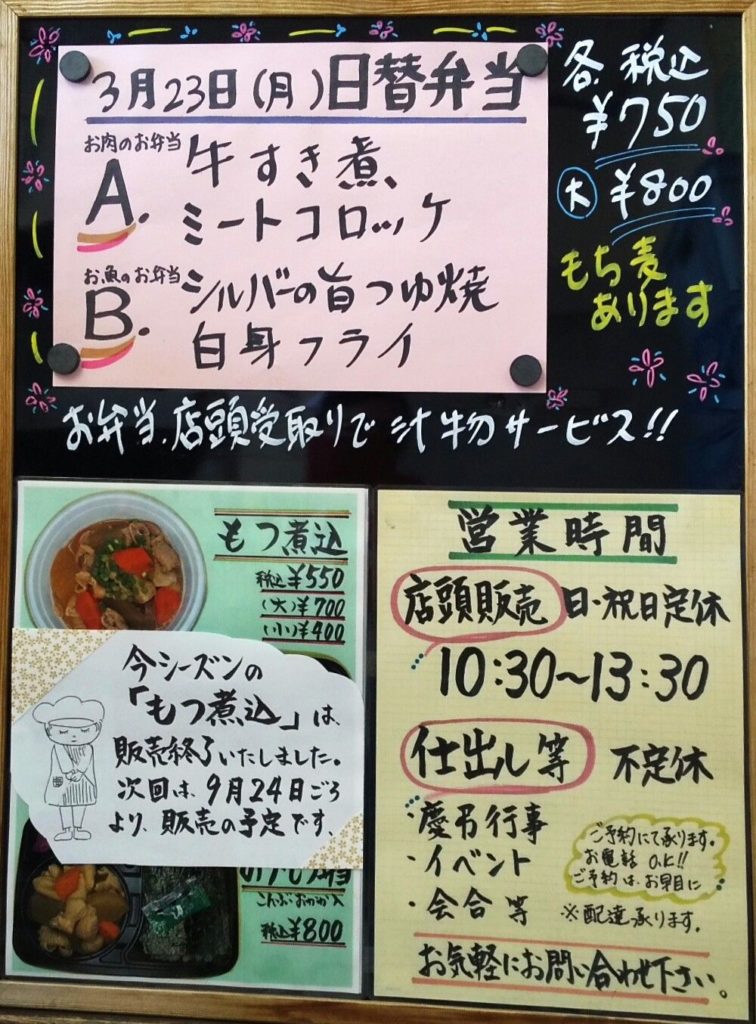 3月23日(月)日替弁当
お肉のお弁当
A.
牛すき煮、
ミートコロッケ
お魚のお弁当
B.
シルバーの旨つゆ焼
白身フライ
各.税込
¥750
大 ¥800
もち麦
あります
お弁当、店頭受取りで汁物サービス!!
もつ煮込
税込¥550
(大)¥700
(小)¥400
今シーズンの
「もつ煮込」は、
販売終了いたしました。
次回は、9月24日ごろ
より、販売の予定です、
こんぶおかか入
税込¥800
営業時間
店頭販売 日・祝日定休
10:30~13:30
仕出し等 不定休
・慶弔行事
・イベント
・会合等
ご予約にて承ります。
お電話 O.K!!
ご予約は、お早目に
※配達承ります。
お気軽にお問い合わせ下さい。